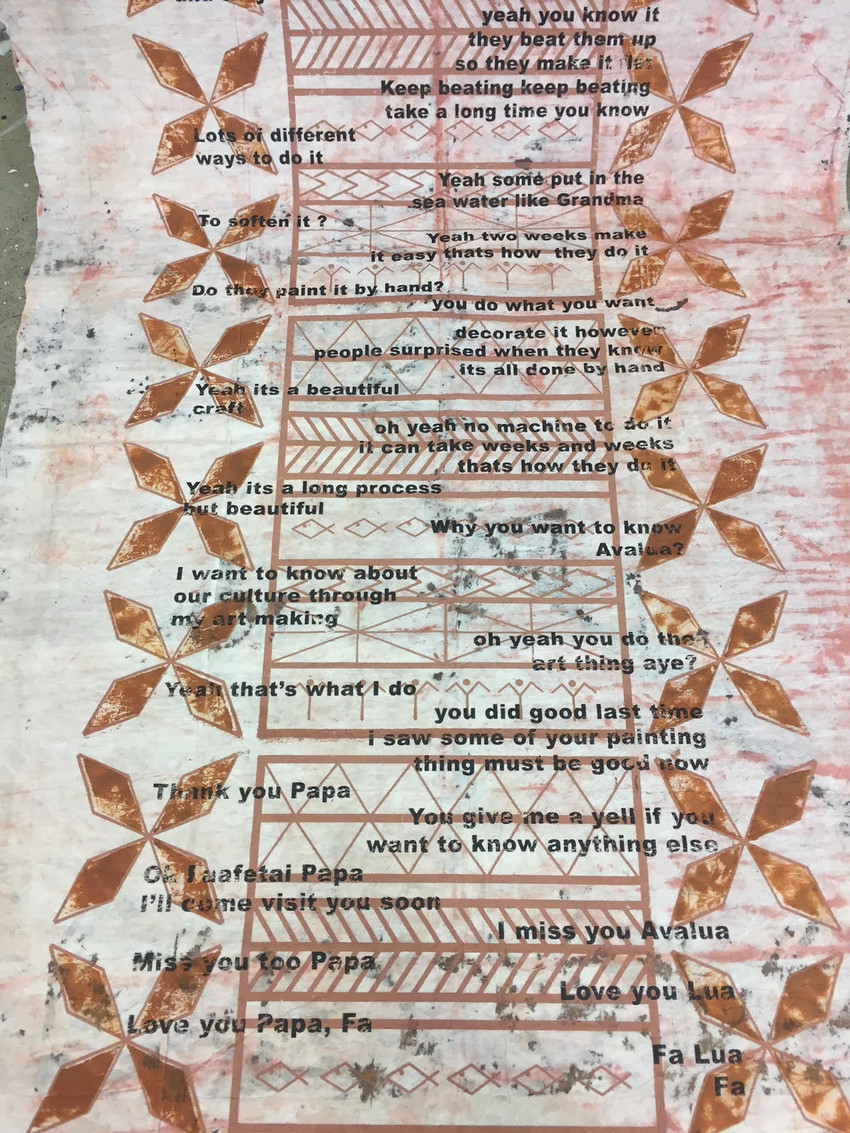 yeah you know it
they beat them up
so they make it flat
Keep beating keep beating
take a long time you know
Lots of different
ways to do it
Yeah some put in the
sea water like Grandma
To soften it ?
Yeah two weeks make
it easy thats how they do it
Do they paint it by hand?
you do what you want
decorate it however
people surprised when they know
its all done by hand
Yeah its a beautiful
craft
oh yeah no machine to do it
it can take weeks and weeks
thats how they do it
Yeah its a long process
but beautiful
Why you want to know
Avalua?
I want to know about
our culture through
my art making
oh yeah you do the
art thing aye?
Yeah that's what I do
you did good last time
i saw some of your painting
thing must be good now
Thank you Papa
You give me a yell if you
want to know anything else
Ok Faafetai Papa
I'll come visit you soon
I miss you Avalua
Miss you too Papa
Love you Lua
Love you Papa, Fa
Fa Lua
Fa